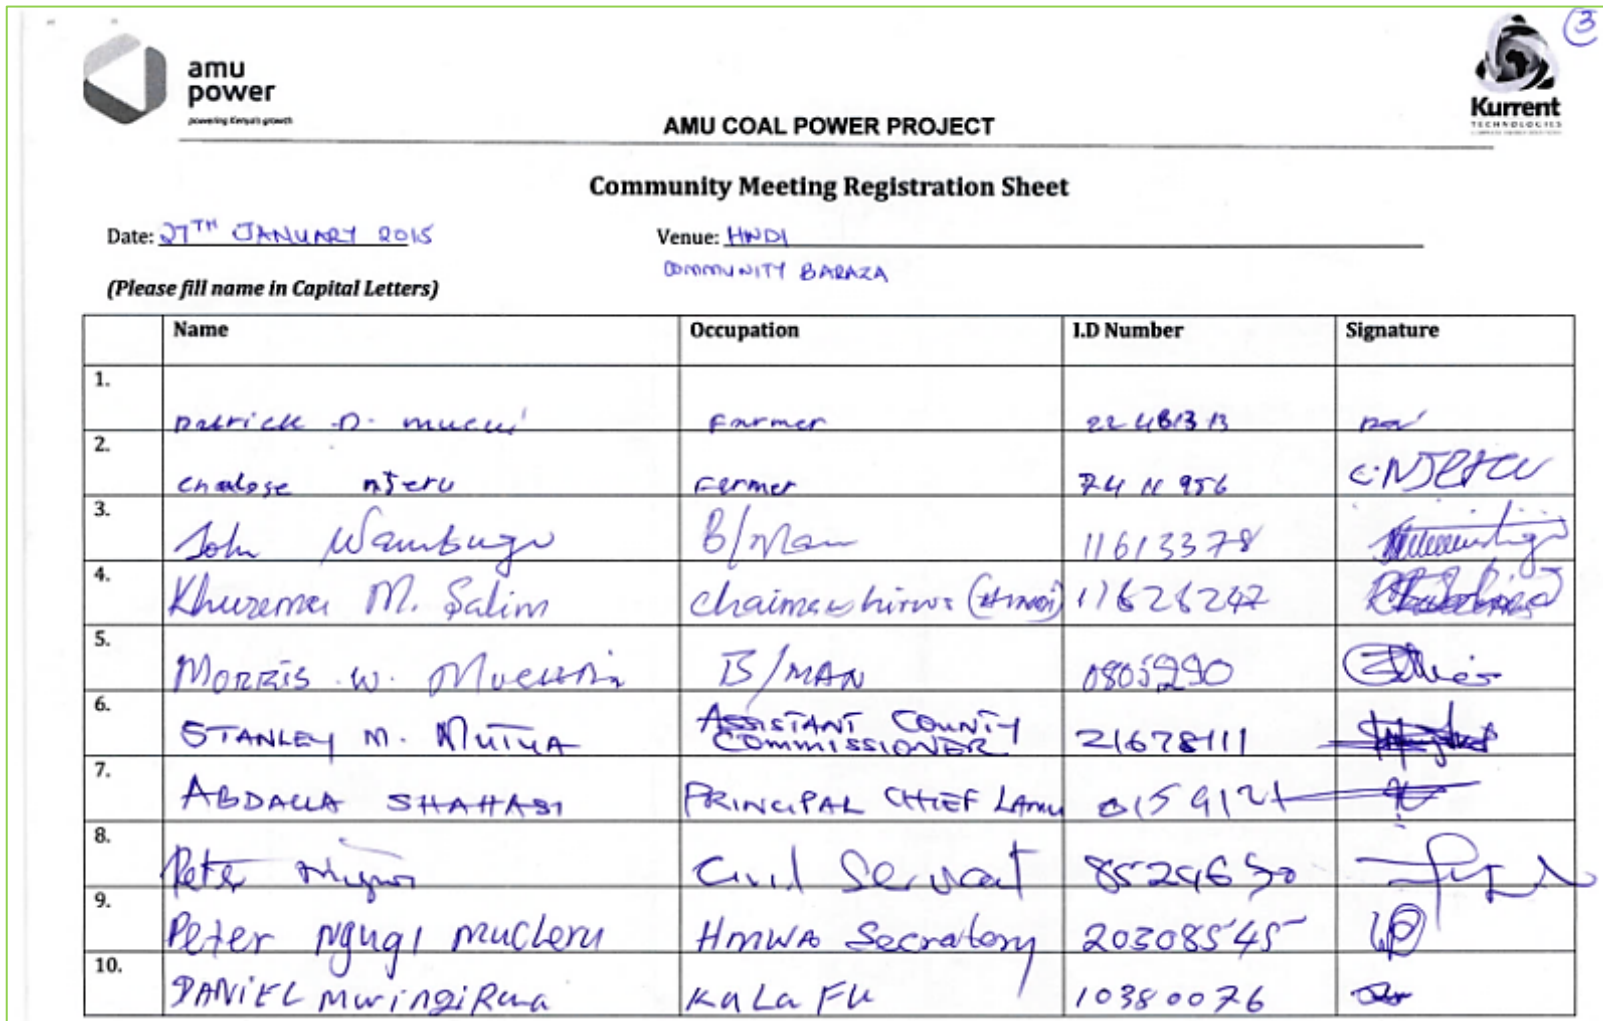 3
amu
power
powering Kenya's growth
Kurrent
TECHNOLOGIES
AMU COAL POWER PROJECT
Community Meeting Registration Sheet
Date: 27TH JANUARY 2015 Venue: HINDI
COMMUNITY BARAZA
(Please fill name in Capital Letters)
Name Occupation I.D Number Signature
1. Patrick D. Farmer
2. njeru Farmer 7411956 C.NJERU
3. John Wambugu B/Man 11613378
4. M. Salim (HINDI) 11626247
5. MORRIS W. B/MAN 0805290
6. STANLEY M. MUTUA ASSISTANT COUNTY COMMISSIONER 21678111
7. ABDALLA SHAHASI PRINCIPAL CHIEF LAMU 0159121
8. Peter Civil Servant
9. Peter Ngugi Mucheru HMWA Secratory 20308545
10. DANIEL 10380076